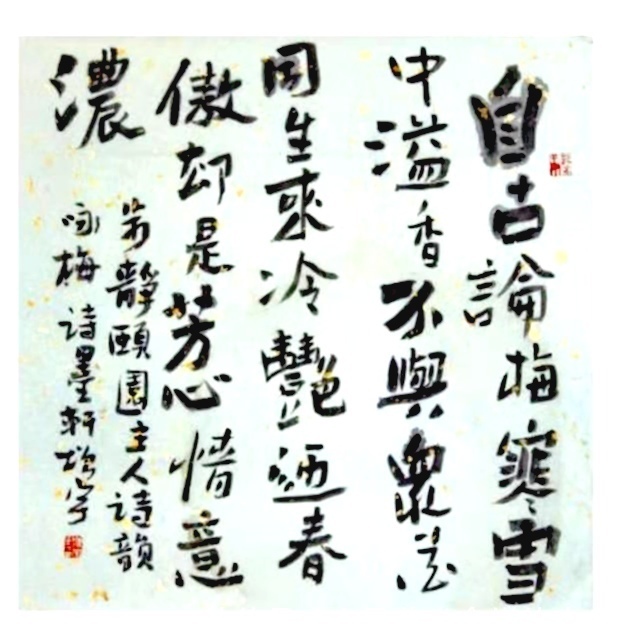 自古論梅寒雪
中溢香不與衆花
同生來冷艷迎春
傲却是芳心情意
濃
步靜頤園主人诗韻
咏梅诗墨軒